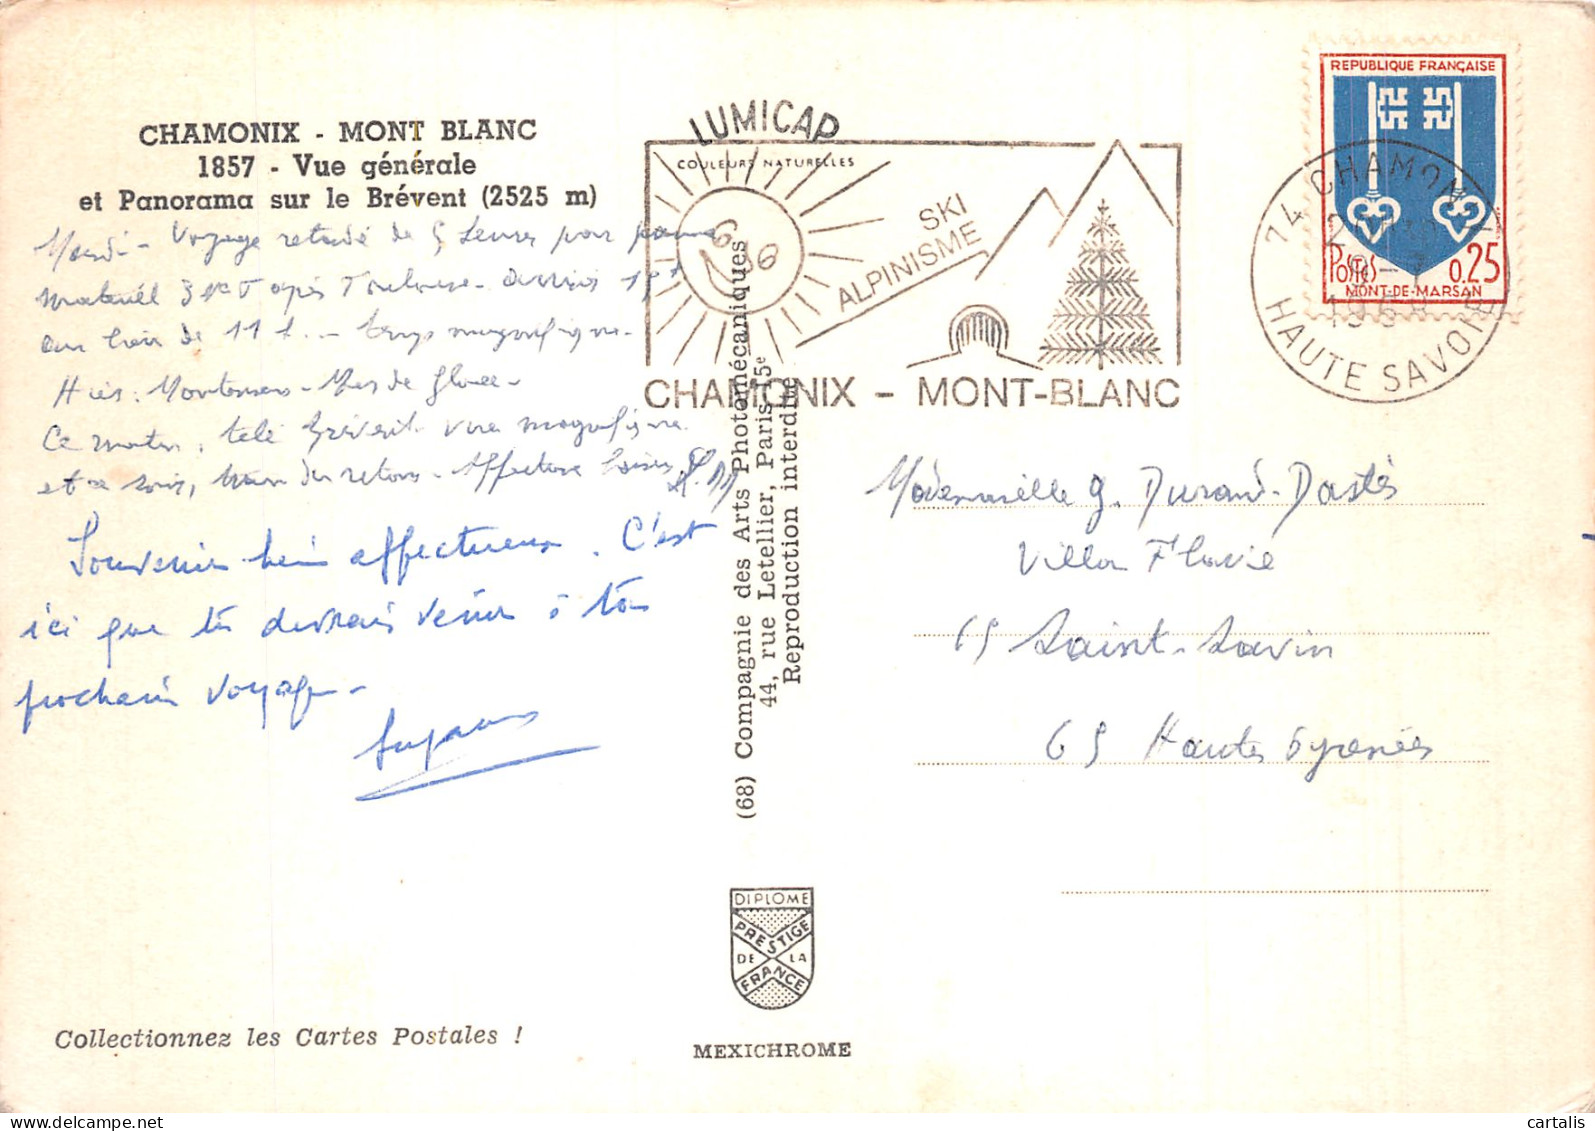 CHAMONIX - MONT BLANC
1857 - Vue générale
et Panorama sur le Brévent (2525 m)
Mardi - Voyage retardé de 5 heures pour panne
matériel 3 après Toulouse - arrivés
au lieu de 11 h. - temps magnifique -
Hier: Montenvers - Mer de glace -
Ce matin, télé Brévent - vue magnifique.
et ce soir, train du retour - Affectueux baisers
Souvenir bien affectueux. C'est
ici que tu devrais venir à ton
prochain voyage -
Suzanne
Collectionnez les Cartes Postales !
LUMICAP
COULEURS NATURELLES
SKI
ALPINISME
CHAMONIX - MONT-BLANC
(68) Compagnie des Arts Photomécaniques
44, rue Letellier, Paris 15e
Reproduction interdite
DIPLOME
PRESTIGE
DE LA
FRANCE
MEXICHROME
REPUBLIQUE FRANÇAISE
POSTES 0.25
MONT-DE-MARSAN
74 CHAMONIX
HAUTE SAVOIE
Mademoiselle G. Durand-Dastès
Villa Flavie
65 Saint-Savin
65 Hautes Pyrénées
cartalis